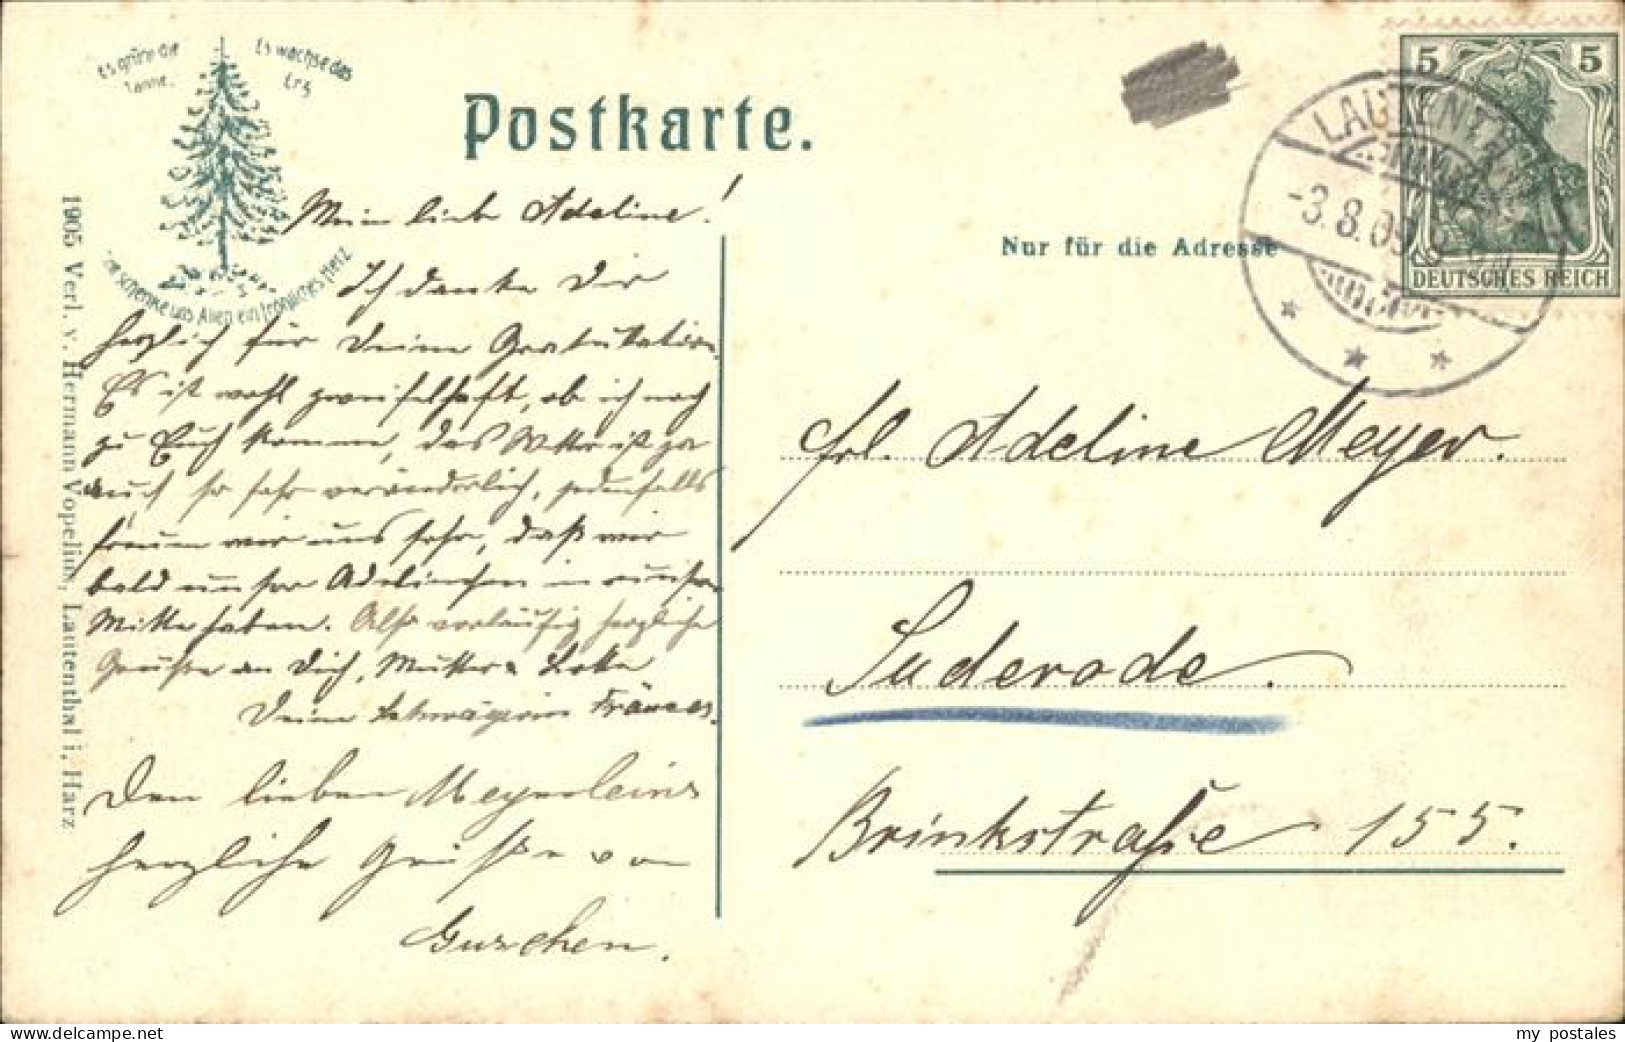 Es grüne die
Tanne.
Es wachse das
Erz
schenke uns Allen ein fröhliches Herz
Postkarte.
Nur für die Adresse
1905 Verl. v. Hermann Vopelius, Lautenthal i. Harz
5 5
DEUTSCHES REICH
LAUTENTHAL
-3.8.09
Mein liebe Adeline!
Ich danke Dir
herzlich für Deine Gratulation.
Es ist wohl zweifelhaft, ob ich noch
zu Euch komme, das Wetter ist ja
auch so sehr veränderlich, jedenfalls
freuen wir uns sehr, daß wir
bald unser Adelinchen in unserer
Mitte haben. Also vorläufig herzliche
Grüße an Dich, Mutter u. Lotte
Deine Schwägerin Frances.
Den lieben Meyerleins
herzliche Grüße von
Guschen.
Frl. Adeline Meyer.
Suderode.
Brinkstraße 155.
© my-postales.com
my postales